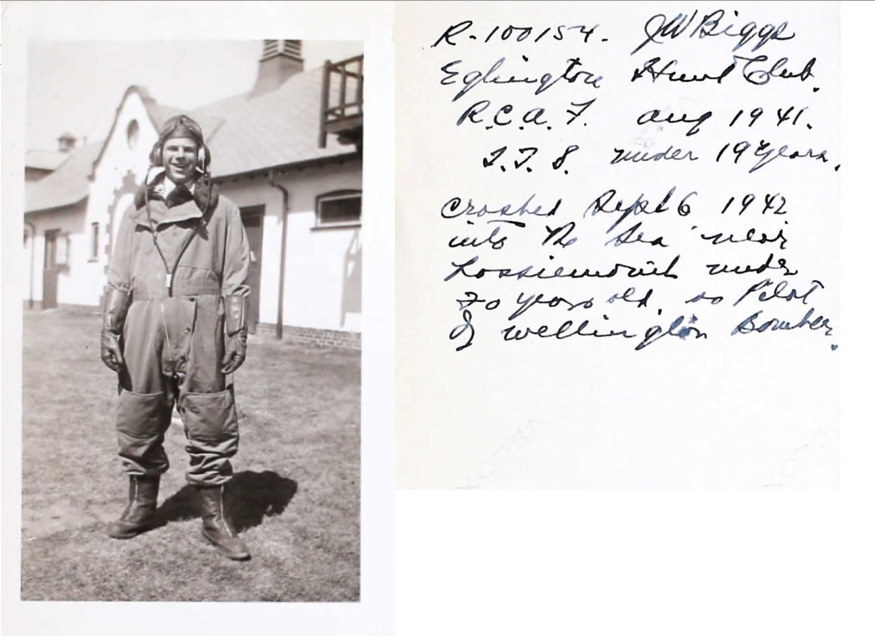 R-100154. JW Biggs
Eglington Hunt Club.
R.C.A.F. Aug 1941.
I.T.S. under 19 years.
Crashed Sept 6 1942
into the Sea near
Lossiemouth under
20 years old. as Pilot
of Wellington Bomber.